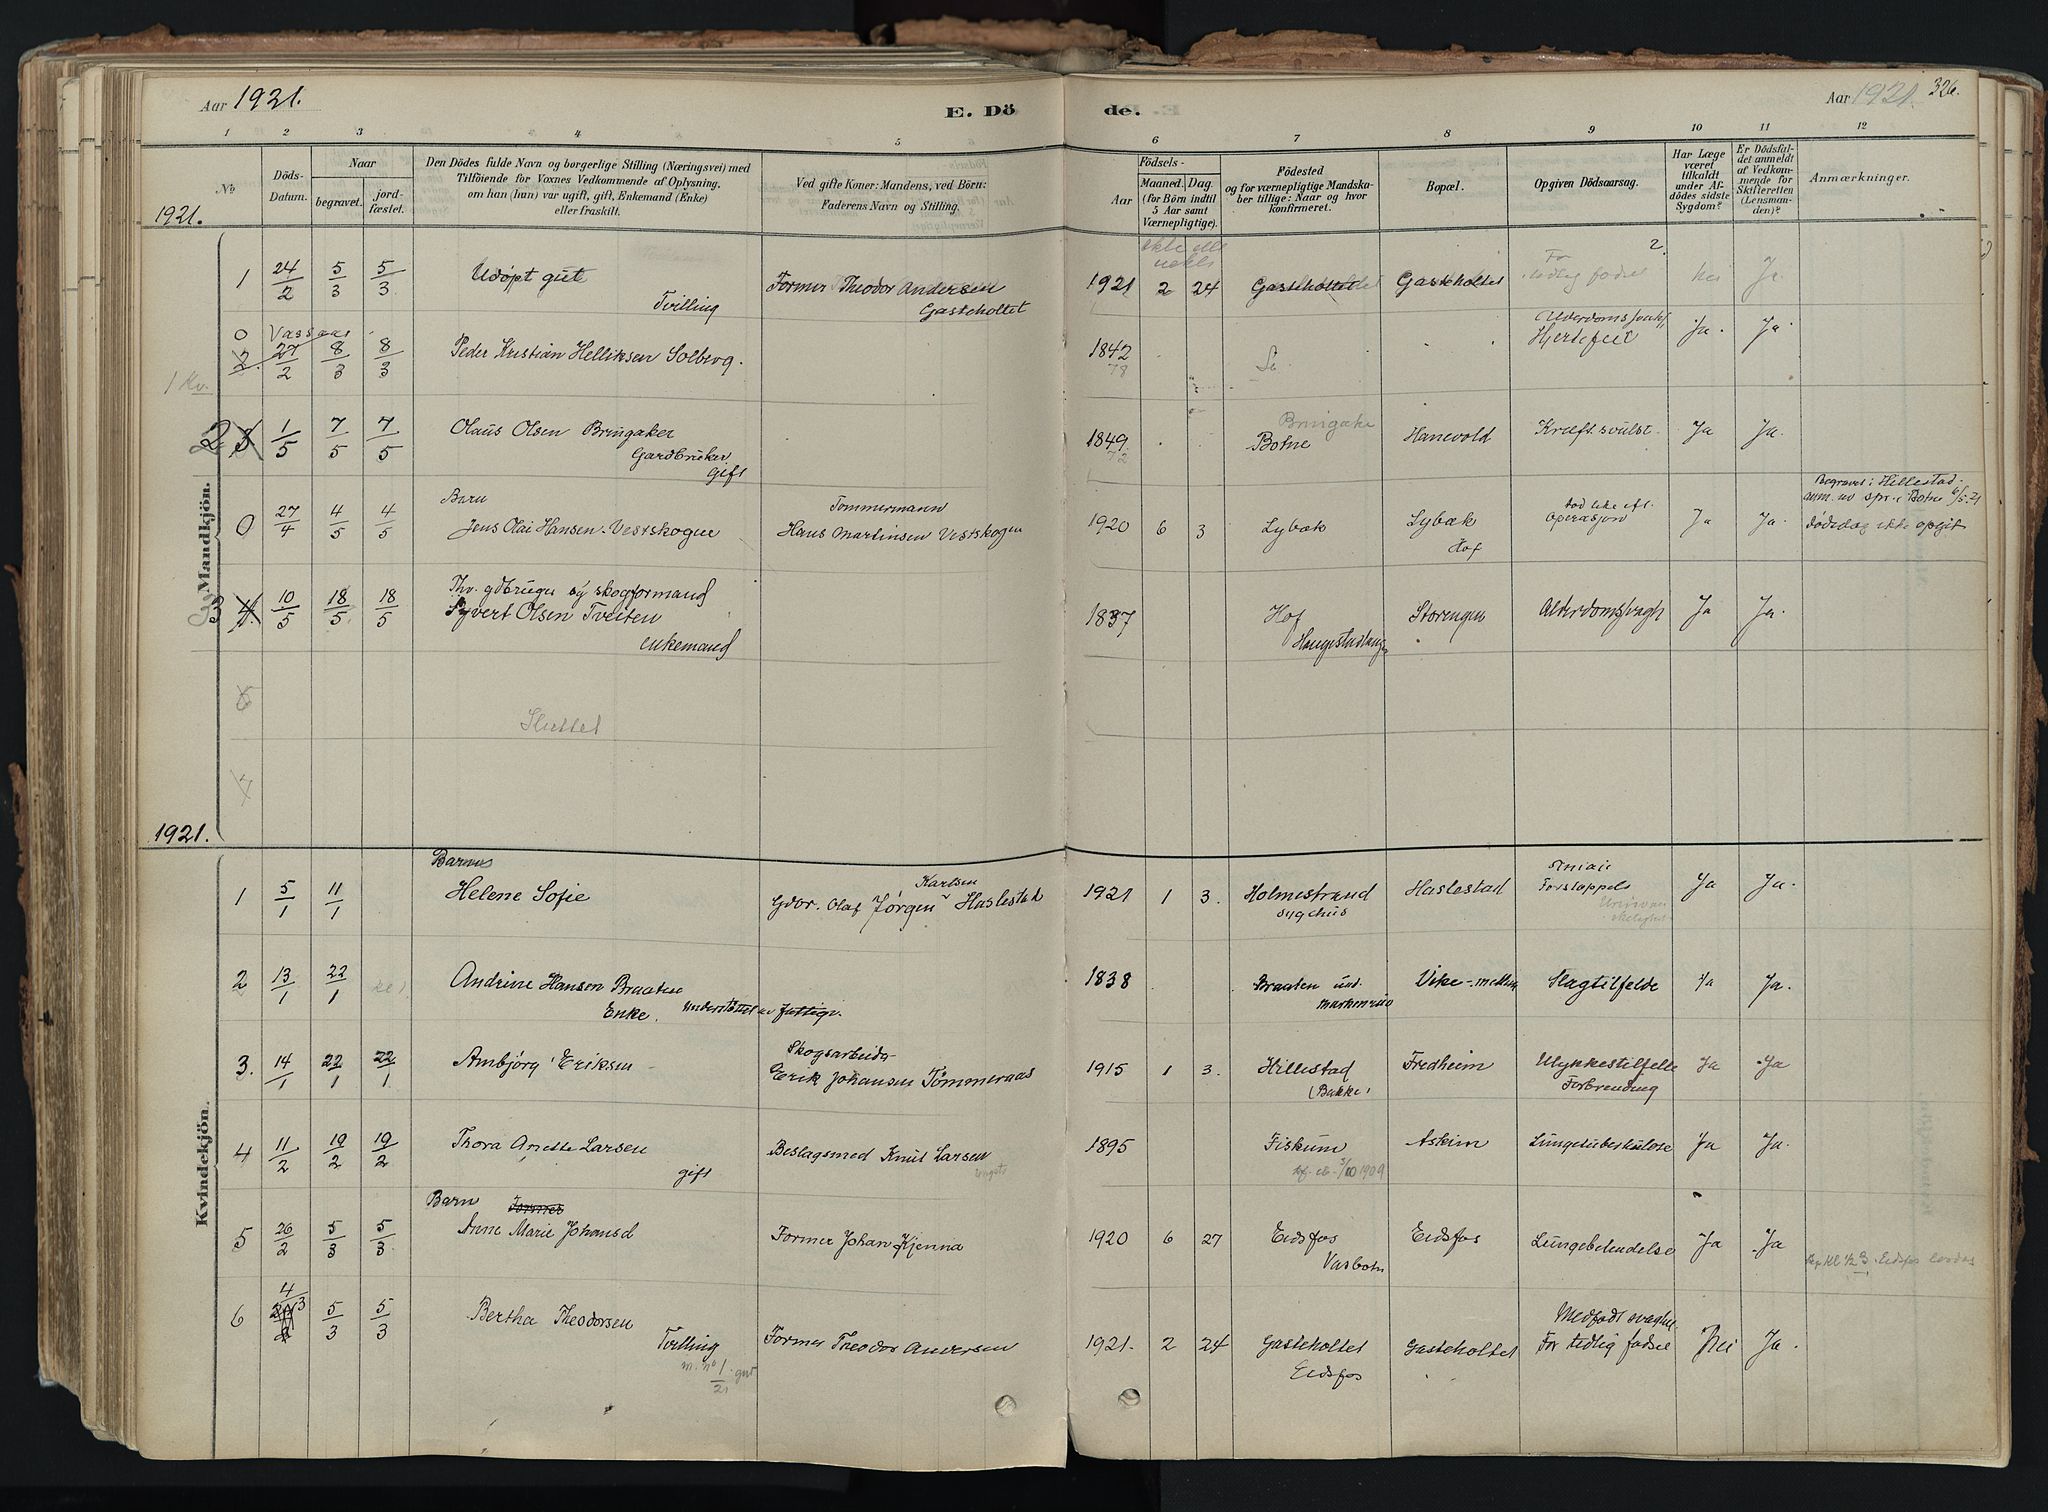 Aar 1921.
E. Döde.
Aar 1921. 326.
1 2 3 4 5 6 7 8 9 10 11 12
No
Döds-
Datum.
Naar
begravet.
jord-
fæstet.
Den Dödes fulde Navn og borgerlige Stilling (Næringsvei) med
Tilföiende for Voxnes Vedkommende af Oplysning,
om han (hun) var ugift, gift, Enkemand (Enke)
eller fraskilt.
Ved gifte Koner: Mandens, ved Börn:
Faderens Navn og Stilling.
Födsels-
Aar
Maaned. Dag.
(for Börn indtil
5 Aar samt
Værnepligtige).
Födested
og for værnepligtige Mandska-
ber tillige: Naar og hvor
konfirmeret.
Bopæl.
Opgiven Dödsaarsag.
Har Læge
været
tilkaldt
under Af-
dödes sidste
Sygdom?
Er Dödsfal-
det anmeldt
af Vedkom-
mende for
Skifteretten
(Lensman-
den)?
Anmærkninger.
1921.
Mandkjön.
1 24/2 5/3 5/3 Udøpt gut Former Theodor Andersen 1921 2 24 Gasteholtet Gasteholtet For tidlig fødsel ? nei Ja
Tvilling Gasteholtet
0 Vassaas
2. 27/2 8/3 8/3 Peder Kristian Helliksen Solberg. 1842 Hjertefeil Ja. Ja.
78
1 Kv.
2 3 1/5 7/5 7/5 Olaus Olsen Bringaker 1849 Botne Hanevold Kræftsvulst. Ja Ja.
72 Bringaker
Gardbruker
Gift
0 27/4 4/5 4/5 Barn
Jens Olai Hansen Vestskogen
Tømmermann
Hans Martinsen Vestskogen 1920 6 3 Lybæk Lybæk
Hof
Operasjon Ja Ja.
Begravet i Hillestad.
anm. av spr. i Botne 6/5-21
dødsdag ikke opgit
3 4 10/5 18/5 18/5 Thv. gdbruger og skogformand
Syvert Olsen Tveiten
enkemand
1837 Hof Storengen Alderdomsvagh Ja Ja.
6
Sluttet
7
1921.
Kvindekjön.
1 5/1 11/1 Barnet
Helene Sofie
Karlsen
Gdbr. Olaf Jørgen Haslestad 1921 1 3. Holmestrand
sygehus
Haslestad Ja Ja.
2 13/1 22/1 Andrine Hansen Braaten
Enke. Understøttet av fattigv.
1838 Braaten Vike-mellem Slagtilfelde Ja Ja.
3. 14/1 22/1 22/1 Ambjørg Eriksen
Skogsarbeider
Erik Johansen Tømmeraas 1915 1 3. Hillestad
(Bakke)
Fredheim Ulykkestilfelle
Forbrending
Ja Ja
4 11/2 19/2 19/2 Thora Anette Larsen
gift
Beslagsmed Knut Larsen
1895 Fiskum
3/10 1909
Askim Lungetuberkulose Ja Ja.
5 26/2 5/3 5/3 Barn Former
Anne Marie Johansd
Former Johan Kjenna 1920 6 27 Eidsfos
Vasbotn
Eidsfos Lungebetendelse Ja Ja
6 4/3 5/3 5/3 Bertha Theodorsen
Tvilling
m. no 1/21 gut
Former Theodor Andersen 1921. 2 24 Gasteholtet
Eidsfos
Gasteholtet Medfødt svaghet
For tidlig fødsel
Nei Ja.